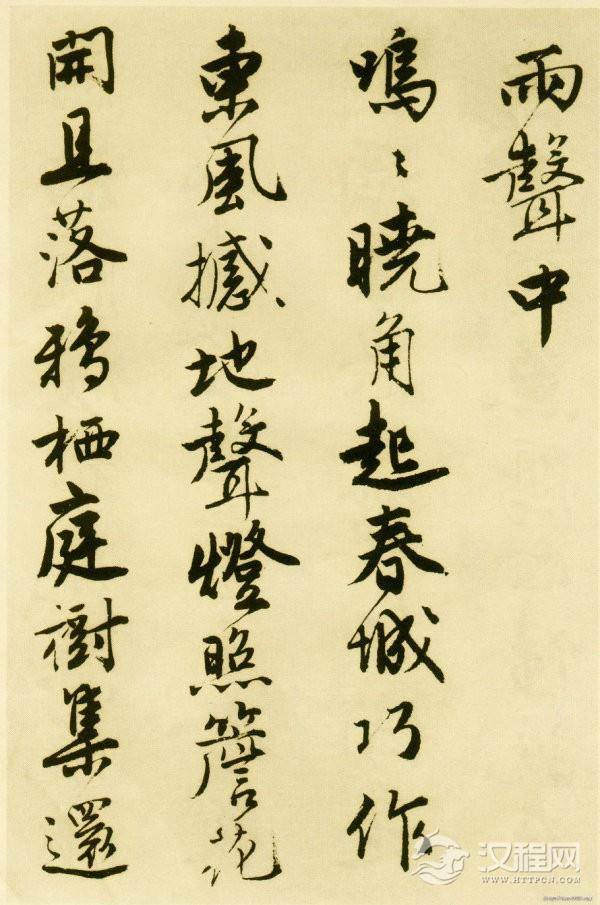 雨聲中
嗚〻曉角起春城巧作
東風撼地聲燈照簷花
開且落鴉栖庭樹集還
汉程网
WWW.HTTPCN.COM